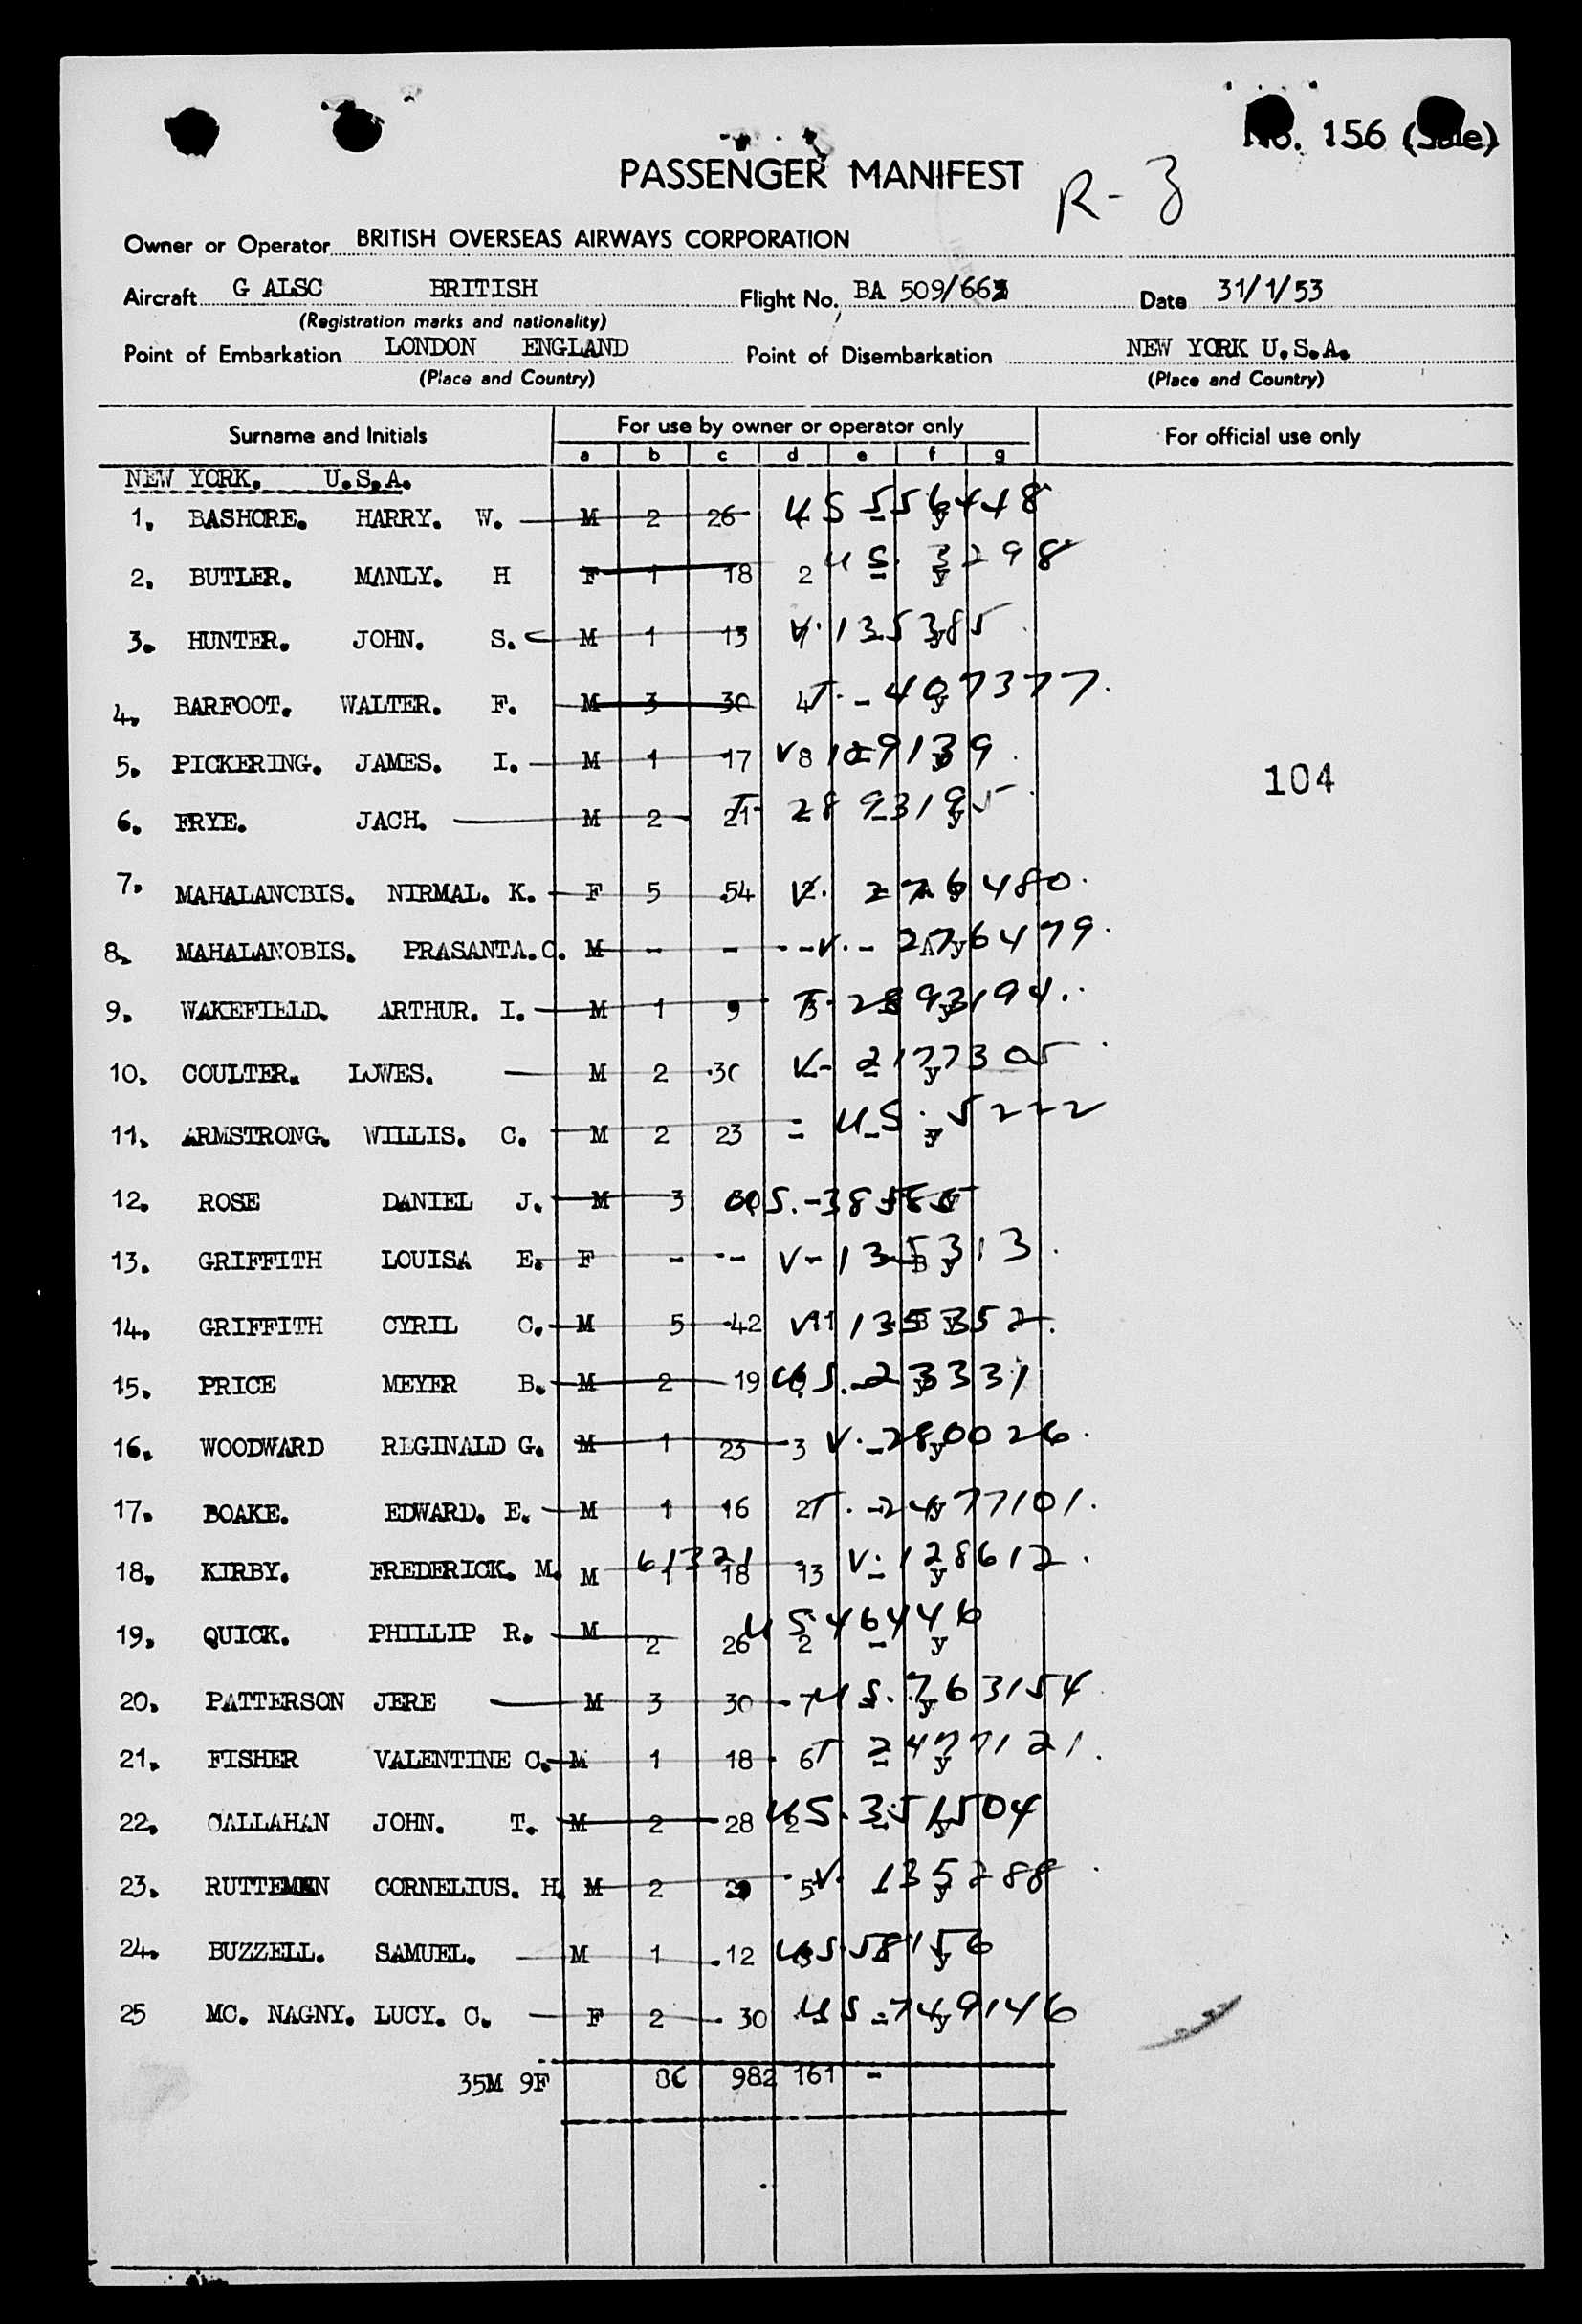 No. 156 (Sale)
PASSENGER MANIFEST R-3
Owner or Operator BRITISH OVERSEAS AIRWAYS CORPORATION
Aircraft G ALSC BRITISH Flight No. BA 509/663 Date 31/1/53
(Registration marks and nationality)
Point of Embarkation LONDON ENGLAND Point of Disembarkation NEW YORK U.S.A.
(Place and Country) (Place and Country)
Surname and Initials For use by owner or operator only For official use only
a b c d e f g
NEW YORK. U.S.A.
1. BASHORE. HARRY. W. M 2 26 US 556448
2. BUTLER. MANLY. H F 1 18 2 US. 3298
3. HUNTER. JOHN. S. M 1 13 V. 135385
4. BARFOOT. WALTER. F. M 3 30 4 T. - 407377.
5. PICKERING. JAMES. I. M 1 17 V 8 129139.
104
6. FRYE. JACH. M 2 21 T- 2893195.
7. MAHALANOBIS. NIRMAL. K. F 5 54 V. 276480.
8. MAHALANOBIS. PRASANTA. C. M - - - V. - 276479.
9. WAKEFIELD. ARTHUR. I. M 1 9 T. 2893194.
10. COULTER. LOWES. M 2 30 V- 2177305
11. ARMSTRONG. WILLIS. C. M 2 23 - US. 5222
12. ROSE DANIEL J. M 3 US.-38585
13. GRIFFITH LOUISA E. F - - V- 135313.
14. GRIFFITH CYRIL C. M 5 42 V 11 135352.
15. PRICE MEYER B. M 2 19 US.-23331
16. WOODWARD REGINALD G. M 1 23 3 V. -280026.
17. BOAKE. EDWARD. E. M 1 16 2 T. -2477101.
18. KIRBY. FREDERICK. M. M 61321 1 18 13 V. 128612.
19. QUICK. PHILLIP R. M 2 26 2 US 464446 - y
20. PATTERSON JERE M 3 30 7 US. 763154
21. FISHER VALENTINE C. M 1 18 6 T 2477121.
22. CALLAHAN JOHN. T. M 2 28 2 US. 351504
23. CORNELIUS. H. M 2 5 V. 135288
24. BUZZELL. SAMUEL. M 1 12 US 58156
25 MC. NAGNY. LUCY. C. F 2 30 US -749146
35M 9F 86 982 161 -